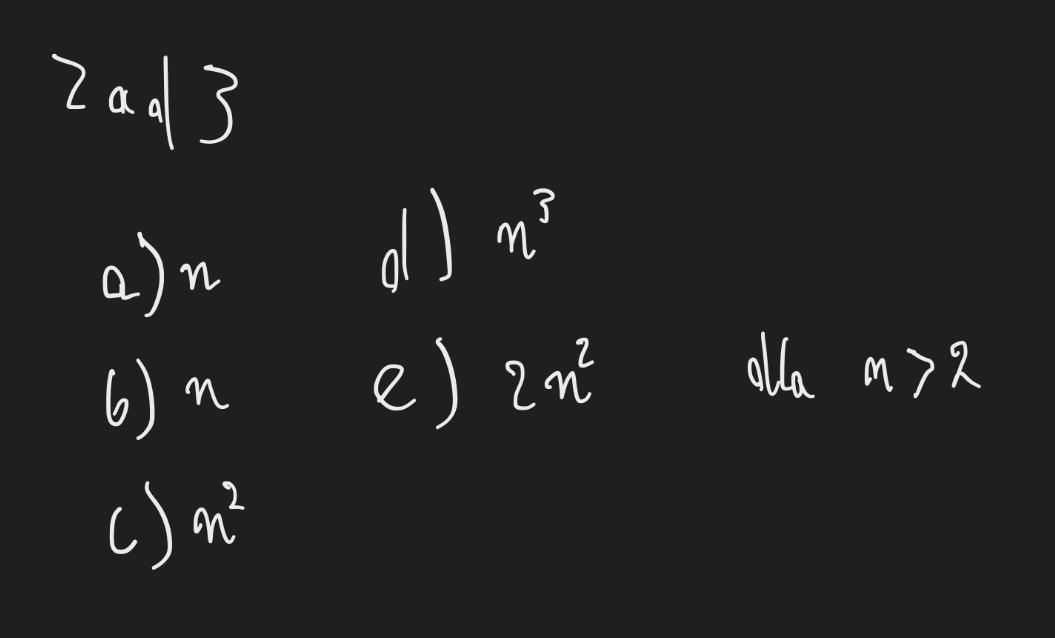 Zad 3
a) n
b) n
c) n²
d) n³
e) 2n² dla n > 2